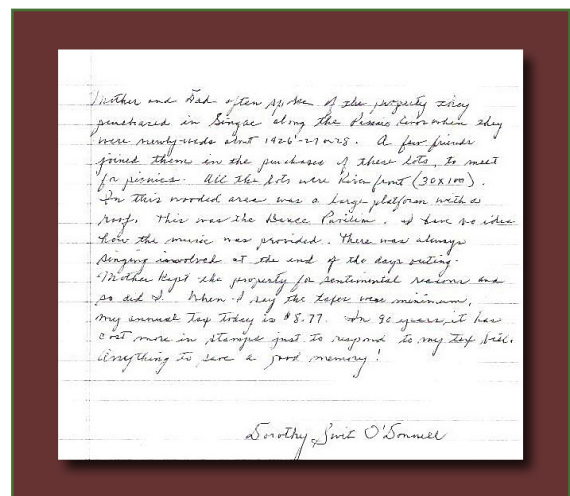 Mother and Dad often spoke of the property they
purchased in Singac along the Passaic River when they
were newly-weds abnt 1926-27 or 28. A few friends
joined them in the purchase of these lots, to meet
for picnics. All the lots were River front (30X100).
In this wooded area was a large platform with a
roof. This was the Dance Pavilion. I have no idea
how the music was provided. There was always
singing involved at the end of the days outing.
Mother kept the property for sentimental reasons and
so did I. When I say the taxes were minimum,
my annual tax today is $8.77. In 90 years, it has
cost more in stamps just to respond to my tax bill.
Anything to save a good memory!
Dorothy O'Donnell